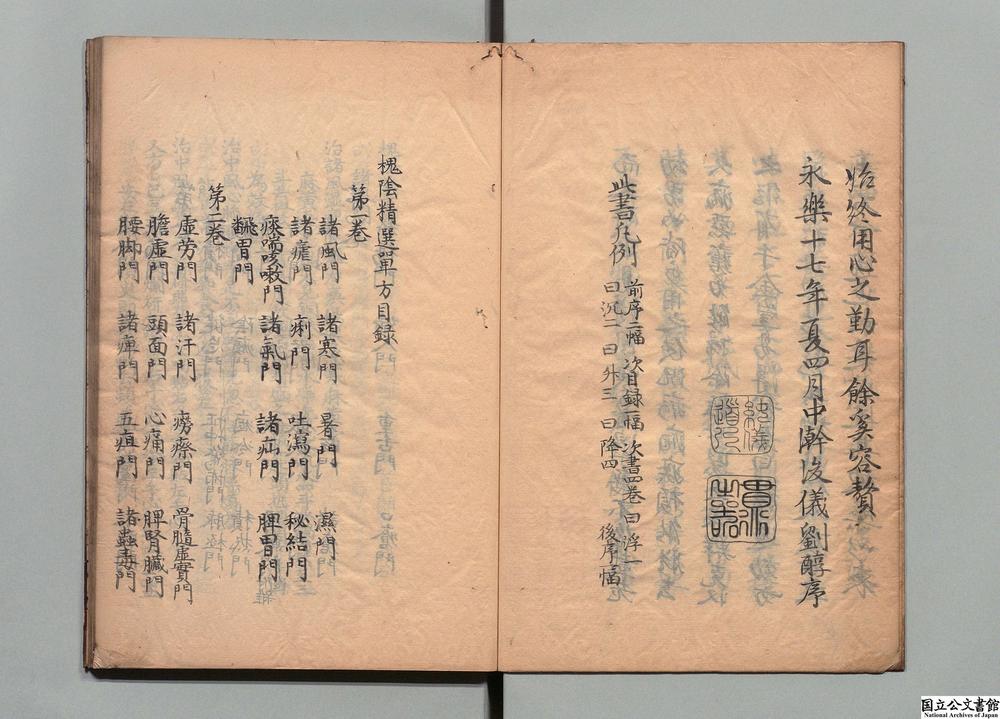 始終用心之勤耳餘奚容贅
永樂十七年夏四月中澣後儀劉醇序
此書凡例 前序二幅 次目録一幅 次書四卷 曰浮一
曰沉二 曰升三 曰降四 後序一幅
槐陰精選單方目録
第一卷
諸風門 諸寒門 暑門 濕門
諸瘧門 痢門 吐瀉門 秘結門
痰喘咳嗽門 諸氣門 諸疝門 脾胃門
翻胃門
第二卷
虚勞門 諸汗門 癆瘵門 骨髓虚實門
膽虚門 頭面門 心痛門 脾腎臓門
腰脚門 諸痺門 五疸門 諸蟲毒門
国立公文書館
National Archives of Japan